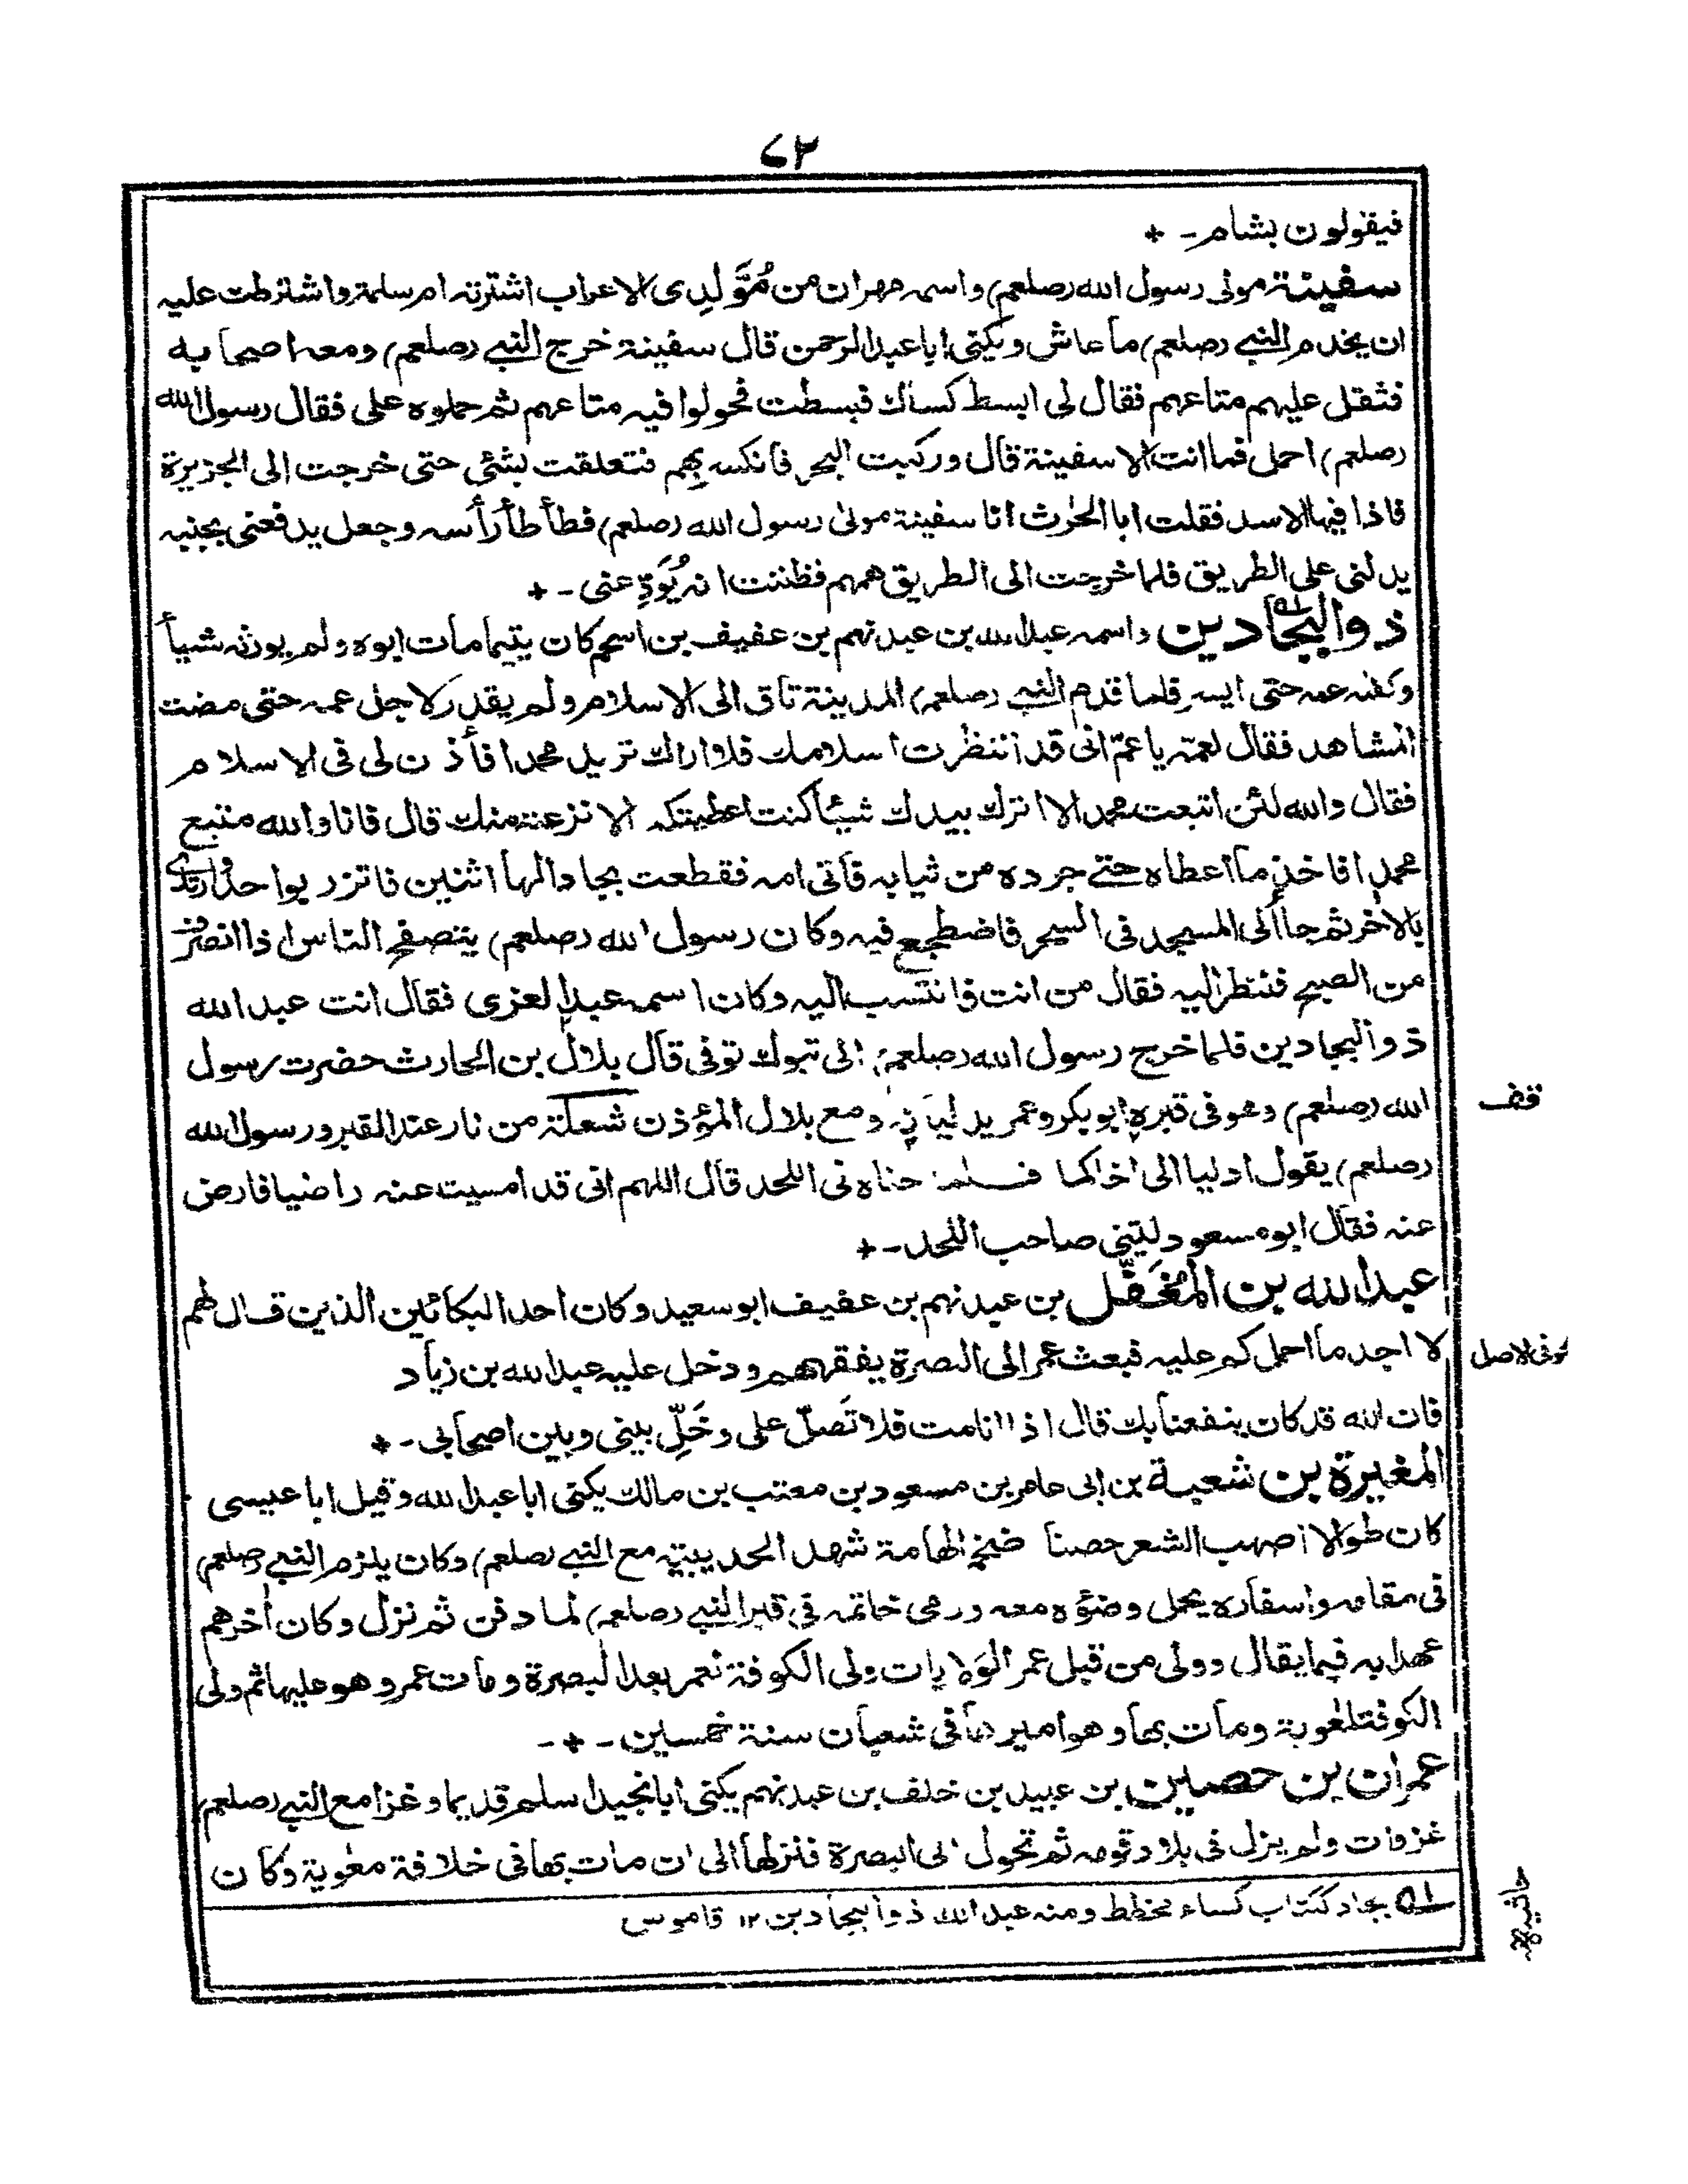 ٦٢
فيقولون بشام - +
سفينة مولى رسول الله (صلعم) واسمه مهران من مُوَّلِدى الاعراب اشترته ام سلمة واشترطت عليه
ان يخدم النبي (صلعم) ما عاش ويكنى ابا عبد الرحمن قال سفينة خرج النبي (صلعم) ومعه اصحابه
فثقل عليهم متاعهم فقال لى ابسط كساك فبسطت فحولوا فيه متاعهم ثم حملوه على فقال رسول الله
(صلعم) احمل فما انت الا سفينة قال وركبت البحر فانكسر بهم فتعلقت بشئى حتى خرجت الى الجزيرة
فاذا فيها الاسد فقلت ابا الحٰرث انا سفينة مولىٰ رسول الله (صلعم) فطأطأ رأسه وجعل يدفعنى بجنبه
يدلنى على الطريق فلما خرجت الى الطريق همهم فظننت انه يُوَدِّعنى - +
ذو البجادين واسمه عبد الله بن عبد نهم بن عفيف بن اسحم كان يتيما مات ابوه ولم يورثه شيأ
وكفله عمه حتى ايسر فلما قدم النبي (صلعم) المدينة تاق الى الاسلام ولم يقدر لاجل عمه حتى مضت
المشاهد فقال لعمه يا عمّ انى قد انتظرت اسلامك فلا اراك تريد محمدا فأذن لى فى الاسلام
فقال والله لئن اتبعت محمدا لا اترك بيدك شيئا كنت اعطيتكه الا نزعته منك قال فانا والله متبع
محمدا فاخذ ما اعطاه حتى جرده من ثيابه فأتى امه فقطعت بجادا لها اثنين فاتزر بواحد وارتدى
بالآخر ثم جاء الى المسجد فى السحر فاضطجع فيه وكان رسول الله (صلعم) يتصفح الناس اذا انصرف
من الصبح فنظر اليه فقال من انت فانتسب اليه وكان اسمه عبد العزى فقال انت عبد الله
ذو البجادين فلما خرج رسول الله (صلعم) الى تبوك توفى قال بلال بن الحارث حضرت رسول
الله (صلعم) وهو فى قبره ابو بكر وعمر يدليانه ومع بلال المؤذن شعلة من نار عند القبر ورسول الله
(صلعم) يقول ادليا الى اخاكما فلما حناه فى اللحد قال اللهم انى قد امسيت عنه راضيا فارض
عنه فقال ابو مسعود ليتنى صاحب اللحد - +
عبد الله بن المُغَفَّل بن عبد نهم بن عفيف ابو سعيد وكان احد البكائين الذين قال لهم
لا اجد ما احملكم عليه فبعث عمر الى البصرة يفقههم ودخل عليه عبد الله بن زياد
فان الله قد كان ينفعنا بك قال اذا انامت فلا تَصلّ على وخَلِّ بينى وبين اصحابى - +
المغيرة بن شعبة بن ابى عامر بن مسعود بن معتب بن مالك يكنى ابا عبد الله وقيل ابا عيسى
كان طوالا اصهب الشعر حصنا ضخم الهامة شهد الحديبية مع النبي (صلعم) وكان يلزم النبي (صلعم)
فى مقامه واسفاره يحمل وضوءه معه ورمى خاتمه فى قبر النبي (صلعم) لما دفن ثم نزل وكان آخرهم
عهدا به فيما يقال وولى من قبل عمر الولايات ولى الكوفة لعمر بعد البصرة ومات عمر وهو عليها ثم ولى
الكوفة لمٰعوية ومات بها وهو اميرها فى شعبان سنة خمسين - + -
عمران بن حصين بن عبيد بن خلف بن عبد نهم يكنى ابا نجيد اسلم قديما وغزا مع النبي (صلعم)
غزوات ولم يزل فى بلاد قومه ثم تحول الى البصرة فنزلها الى ان مات بها فى خلافة معٰوية وكان
ــه بجاد ككتاب كساء مخطط ومنه عبد الله ذو البجادين ١٢ قاموس
قف
كوفى الاصل
حاشيه